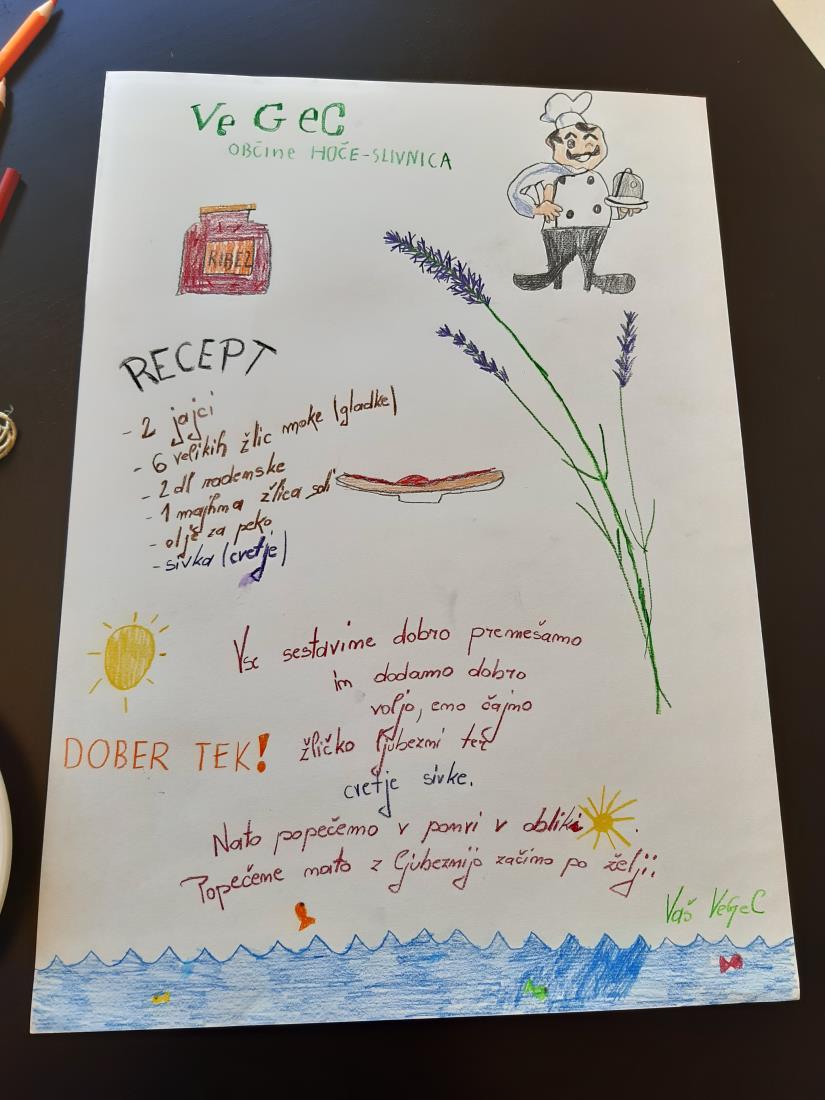 VeGeC
OBČINE HOČE-SLIVNICA
RIBEZ
RECEPT
- 2 jajci
- 6 velikih žlic moke (gladke)
- 2 dl radenske
- 1 majhna žlica soli
- olje za peko
- sivka (cvetje)
Vse sestavine dobro premešamo
in dodamo dobro
voljo, eno čajno
DOBER TEK! žličko ljubezni ter
cvetje sivke.
Nato popečemo v ponvi v obliki .
Popečene nato z ljubeznijo začimo po želji:
Vaš VeGeC